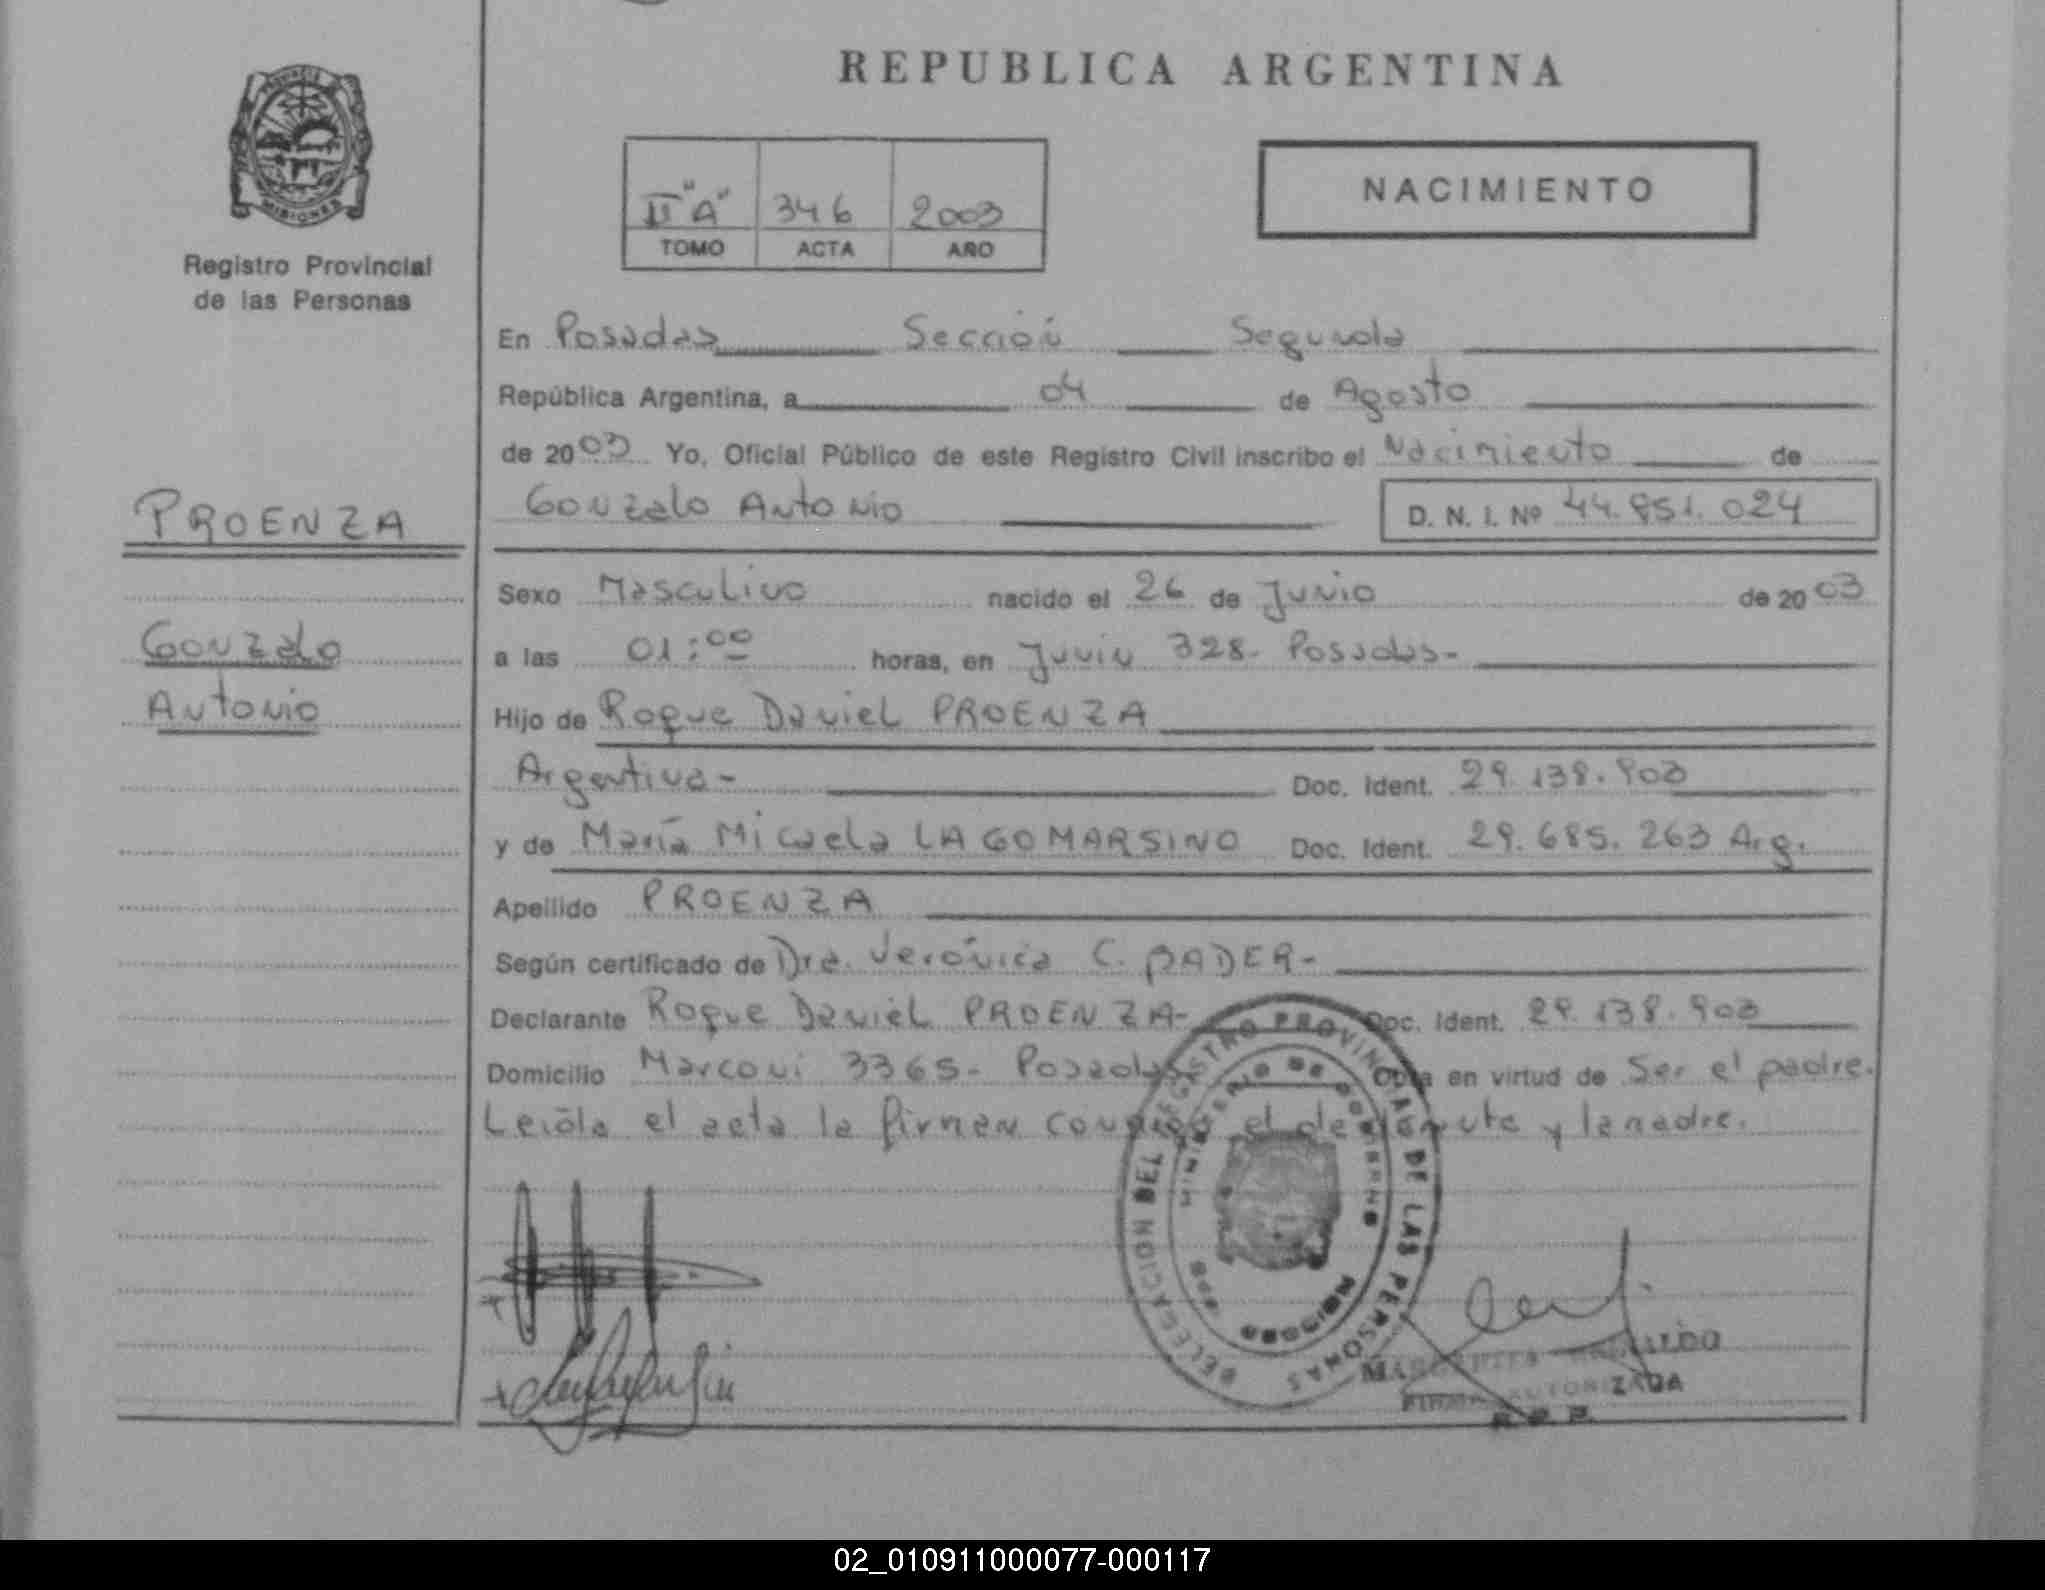 REPUBLICA ARGENTINA
MISIONES
Registro Provincial
de las Personas
II "A" 346 2003
TOMO ACTA AÑO
NACIMIENTO
En Posadas Sección Segunda
República Argentina, a 04 de Agosto
de 2003 Yo, Oficial Público de este Registro Civil inscribo el Nacimiento de
Gonzalo Antonio D. N. I. Nº 44.851.024
PROENZA
Gonzalo
Antonio
Sexo Masculino nacido el 26 de Junio de 2003
a las 01:00 horas, en Junín 328- Posadas-
Hijo de Roque Daniel PROENZA
Argentina- Doc. Ident. 29.138.903
y de María Micaela LAGOMARSINO Doc. Ident. 29.685.263 Arg.
Apellido PROENZA
Según certificado de Dra. Verónica C. BADER-
Declarante Roque Daniel PROENZA- Doc. Ident. 29.138.903
Domicilio Marconi 3365- Posadas Obra en virtud de Ser el padre.
Leída el acta la firman conmigo el declarante y la madre.
DELEGACION DEL REGISTRO PROVINCIAL DE LAS PERSONAS
MINISTERIO DE GOBIERNO
MISIONES
FIRMA AUTORIZADA
R.P.P.
02_010911000077-000117